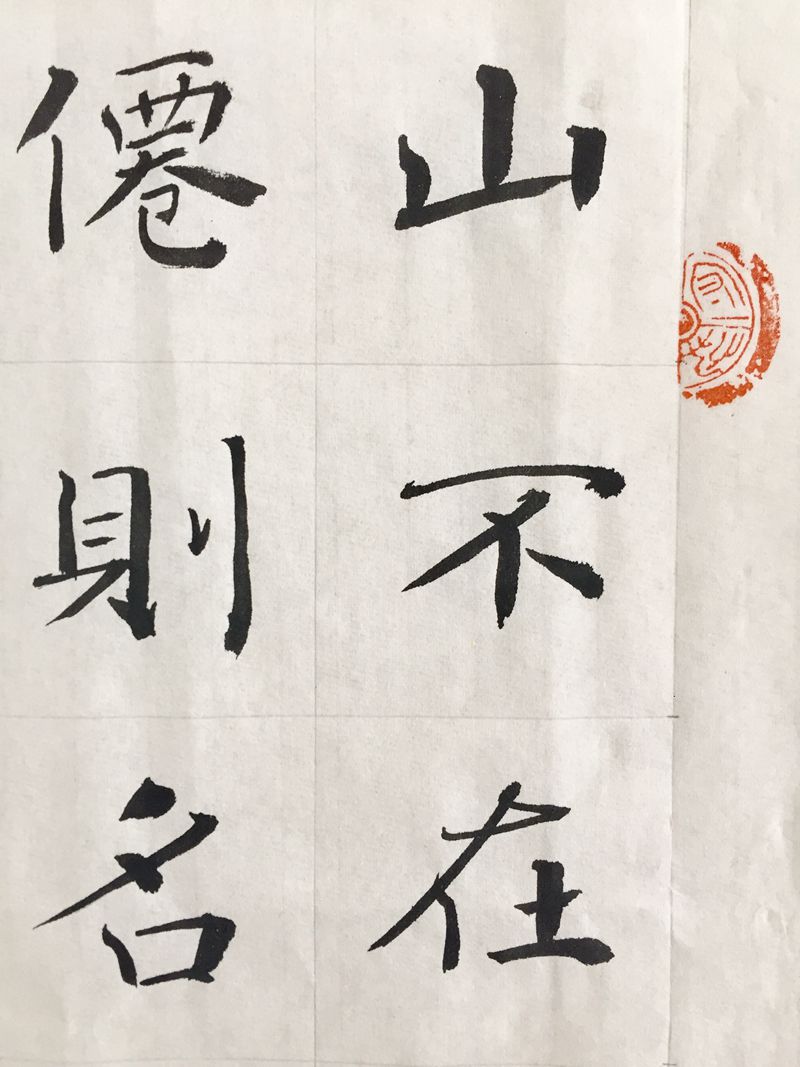 山不在
僊則名